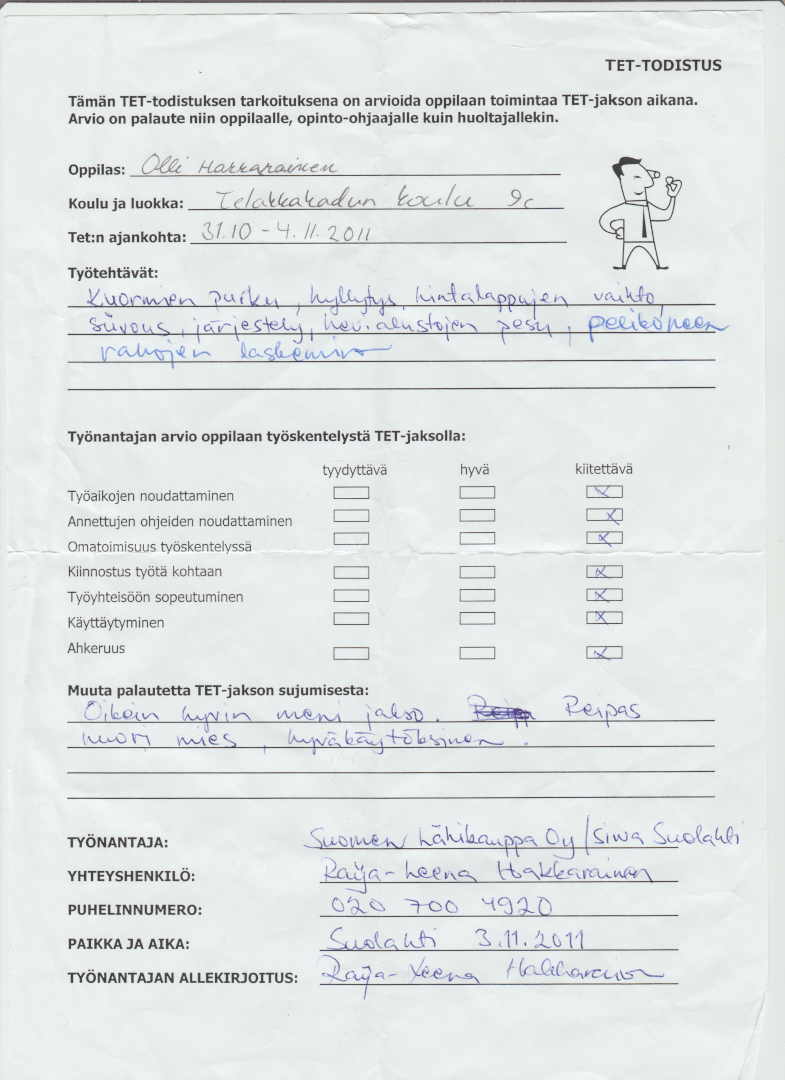 TET-TODISTUS
Tämän TET-todistuksen tarkoituksena on arvioida oppilaan toimintaa TET-jakson aikana.
Arvio on palaute niin oppilaalle, opinto-ohjaajalle kuin huoltajallekin.
Oppilas: Olli Hakkarainen
Koulu ja luokka: Telakkakadun koulu 9c
Tet:n ajankohta: 31.10 - 4.11.2011
Työtehtävät:
Kuormien purku, hyllytys, hintalappujen vaihto,
siivous, järjestely, hev.alustojen pesu, pelikoneen
rahojen laskeminen
Työnantajan arvio oppilaan työskentelystä TET-jaksolla:
tyydyttävä hyvä kiitettävä
Työaikojen noudattaminen x
Annettujen ohjeiden noudattaminen x
Omatoimisuus työskentelyssä x
Kiinnostus työtä kohtaan x
Työyhteisöön sopeutuminen x
Käyttäytyminen x
Ahkeruus x
Muuta palautetta TET-jakson sujumisesta:
Oikein hyvin meni jakso. Reipas
nuori mies, hyväkäytöksinen.
TYÖNANTAJA: Suomen Lähikauppa Oy/Siwa Suolahti
YHTEYSHENKILÖ: Raija-Leena Hakkarainen
PUHELINNUMERO: 020 700 4920
PAIKKA JA AIKA: Suolahti 3.11.2011
TYÖNANTAJAN ALLEKIRJOITUS: Raija-Leena Hakkarainen